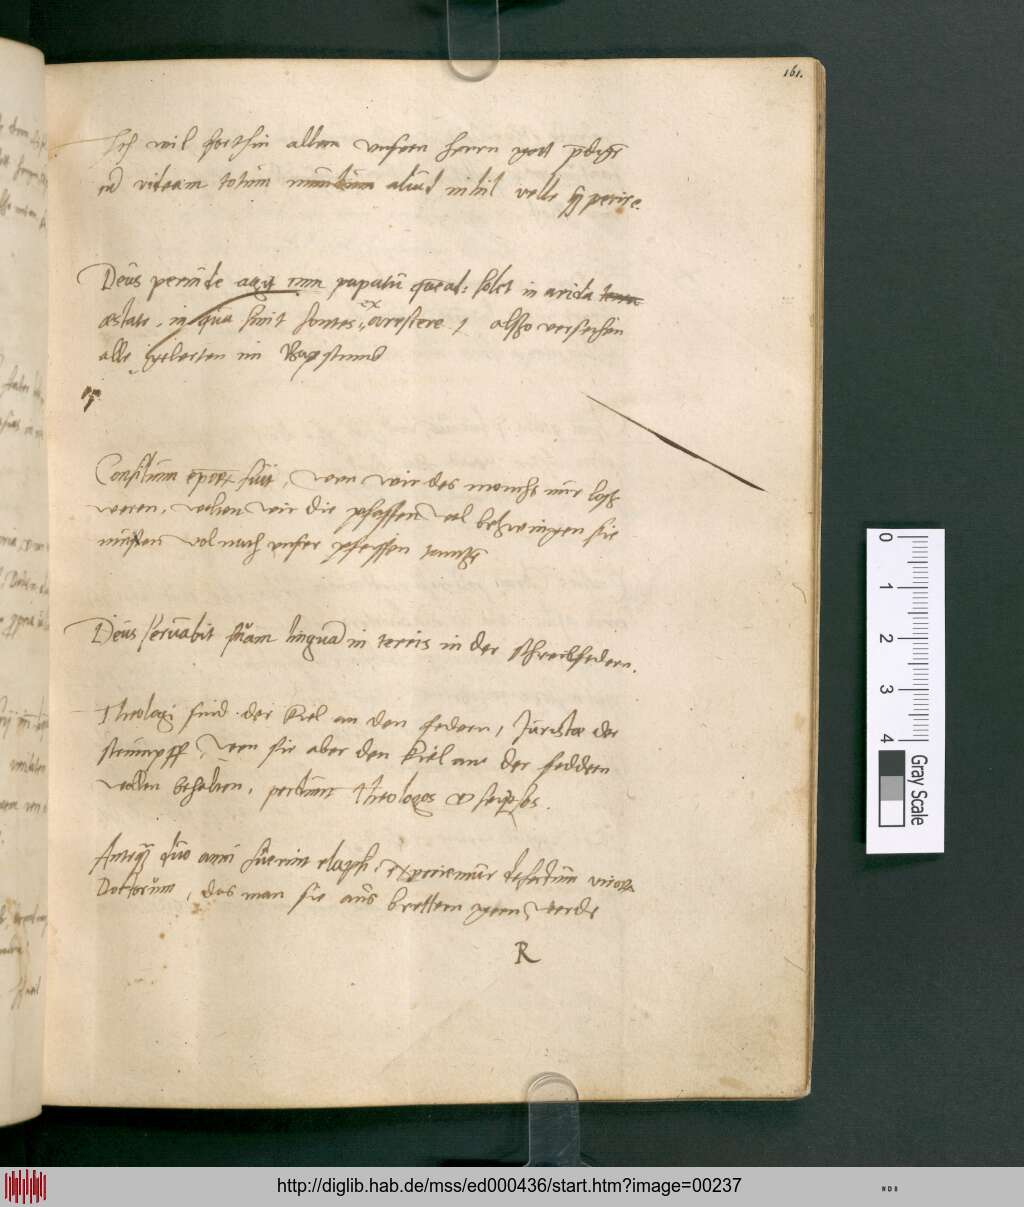 161.
Ich wil forthin allen unsern herrn gott pdigē
cū videam totum mundum aliud nihil velle q̄ perire.
Deus perinde agit cum papatu quead: solet in arida terra
ex
aestate, in qua sinit fontes, arescere / also versiehen
alle gelerten im Bapstumb
Consilium epōr fuit, wen wir des monchs nur loss
weren, wolten wir die pfaffen wol bezwingen sie
musten wol nach unser pfeiffen tantzē
Deus servabit suam linguā in terris in der schreibfedern.
Theologi sind der kiel an den federn, Juristae der
strumpff, wen sie aber den kiel an der feddern
wollen behalten, perdunt theologos et seipsos.
Anteq̄ duo anni fuerint elapsi, experiemur defectum virorū
Doctorum, das man sie aus brettern gern werde
R
0
1
2
3
4
Gray Scale
http://diglib.hab.de/mss/ed000436/start.htm?image=00237
WDB